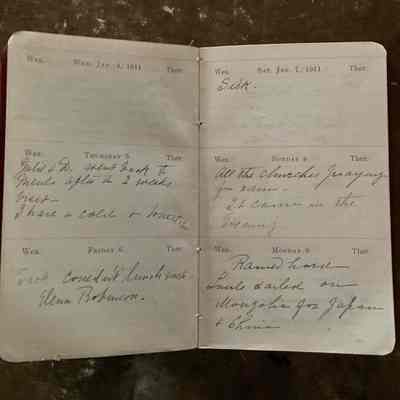 Wea. Wed. Jan. 4, 1911 Ther.
Wea. Thursday 5 Ther.
& D. went back to
after a 2 weeks
visit.
I have a cold &
Wea. Friday 6 Ther.
couldn't lunch with
Elena Robinson.
Wea. Sat. Jan. 7, 1911 Ther.
Sick.
Wea. Sunday 8 Ther.
All the churches praying
for rain.
It came in the
evening
Wea. Monday 9 Ther.
Rained hard
sailed on
Mongolia for Japan
& China